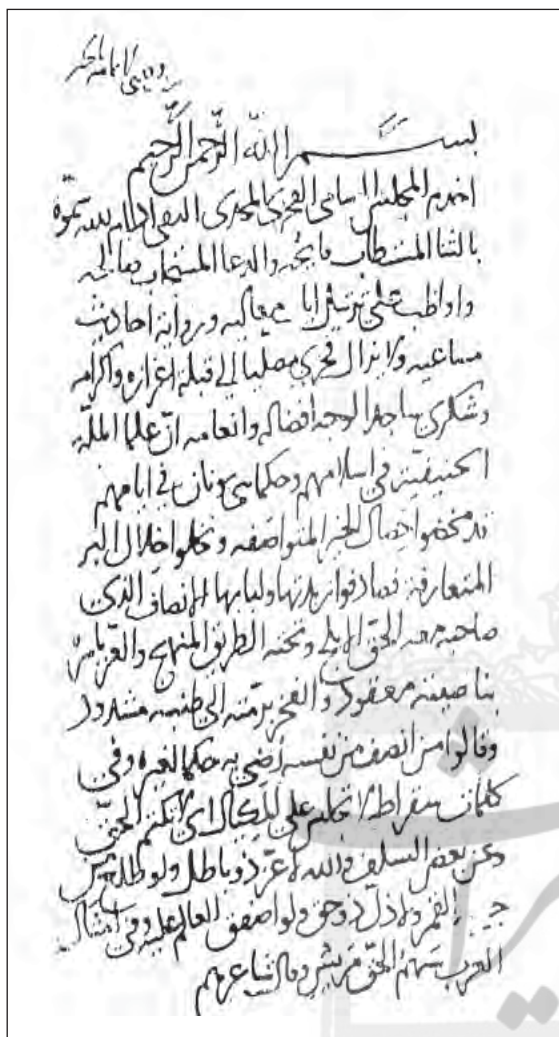 بسم الله الرحمن الرحيم
اخدم المجلس السامي الفخري المجدي
بالثنا المستطاب والدعا المستجاب
واواظب على ترتيل ورواية احاديث
مساعيه ولا يزال فخري مصليا الى قبلة اعزازه واكرامه
وشكري ساجدا لوجه افضاله وانعامه ان علما الملة
الحنيفية في اسلامهم وحكما يونان في ايامهم
قد مخضوا خصال الخير المتواصفه ونخلوا خلال البر
المتعارفة فصادفوا زبدتها ولبابها الانصاف الذي
صاحبه معه الحق الابلج وتحته الطريق المنهج والعز
بناصيته معقود والفخر برمته الى طنبه مشدود
وقالوا من انصف من نفسه رضي به حكما لغيره وفي
كلمات سقراط لا تجلس على المكيال اي لا تكتم الحق
وعن بعض السلف والله لا عز ذو باطل ولو طلع من
جبينه القمر ولا ذل ذو حق ولو اصفق العالم عليه وفي امثال
العرب سهم الحق مريش وقال شاعرهم